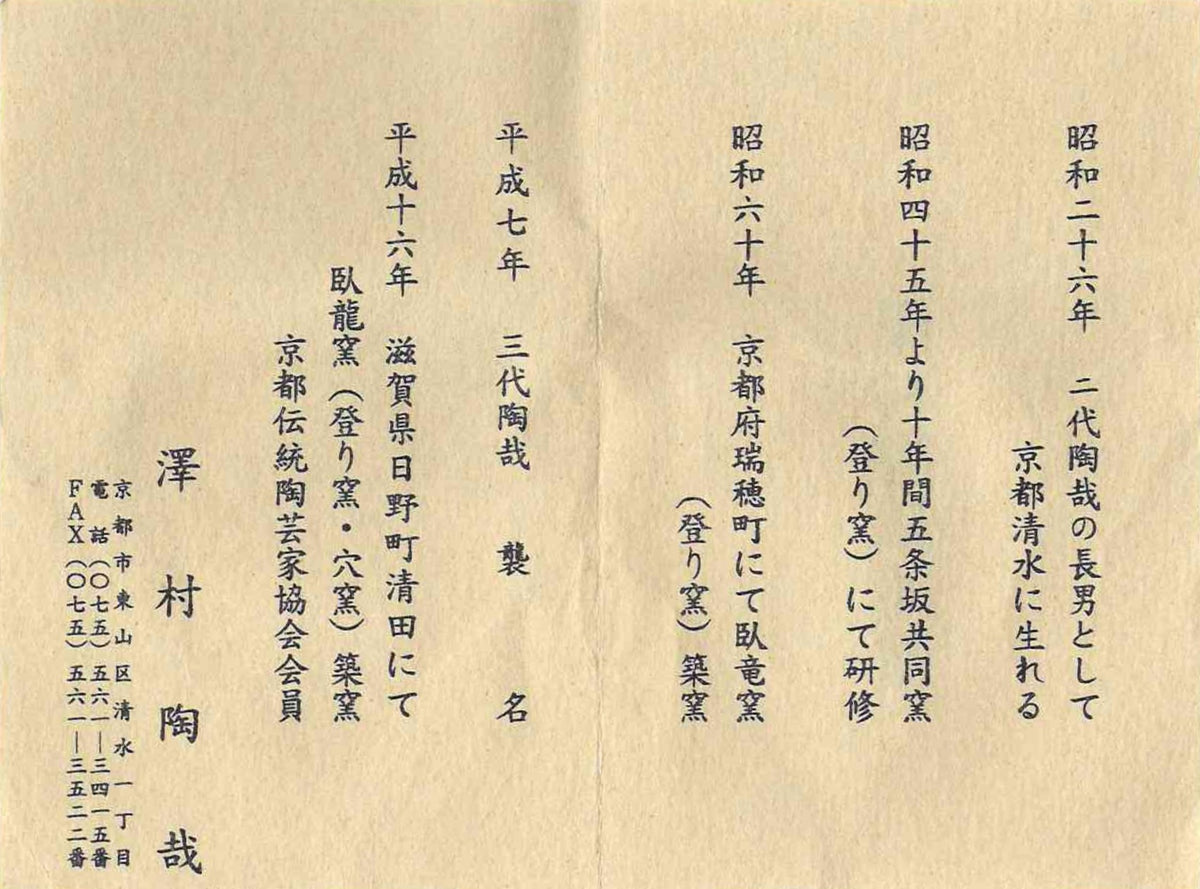 昭和二十六年　二代陶哉の長男として
京都清水に生れる
昭和四十五年より十年間五条坂共同窯
（登り窯）にて研修
昭和六十年　京都府瑞穂町にて臥竜窯
（登り窯）築窯
平成七年　三代陶哉　襲名
平成十六年　滋賀県日野町清田にて
臥龍窯（登り窯・穴窯）築窯
京都伝統陶芸家協会会員
澤村陶哉
京都市東山区清水一丁目
電話（〇七五）五六一―三四一五番
ＦＡＸ（〇七五）五六一―三五二二番